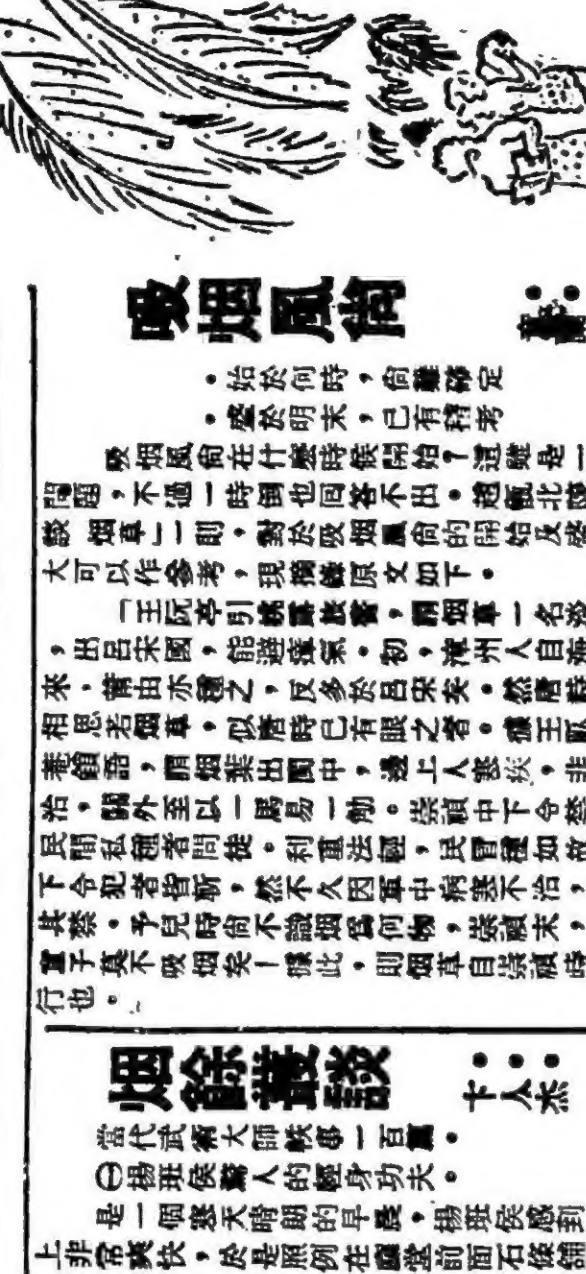 吸烟風尚
·始於何時,尚難確定
·盛於明末,已有稽考
吸烟風尚在什麼時候開始?這雖是一
問題,不過一時倒也回答不出。趙甌北陔
烟草」一則,對於吸烟風尚的開始及盛
大可以作參考,現摘錄原文如下。
「王阮亭引姚露旅書,謂烟草一名淡
,出呂宋國,能避瘴氣。初,漳州人自海
來,莆田亦種之,反多於呂宋矣。然唐詩
相思若烟草,似唐時已有服之者。據王阮
菴餾語,謂烟葉出閩中,邊上人寒疾,非
治,關外至以一馬易一觔。崇禎中下令禁
民間私種者問徒。利重法輕,民冒種如故
下令犯者皆斬,然不久因軍中病寒不治,
其禁。予兒時尚不識烟爲何物,崇禎末,
童子莫不吸烟矣」據此,則烟草自崇禎時
行也。
烟餘叢談
卞人杰
當代武術大師軼事一百篇。
㊀楊班侯驚人的輕身功夫。
是一個寒天晴朗的早晨,楊班侯感到
上非常爽快,於是照例在廳堂前面石條鋪